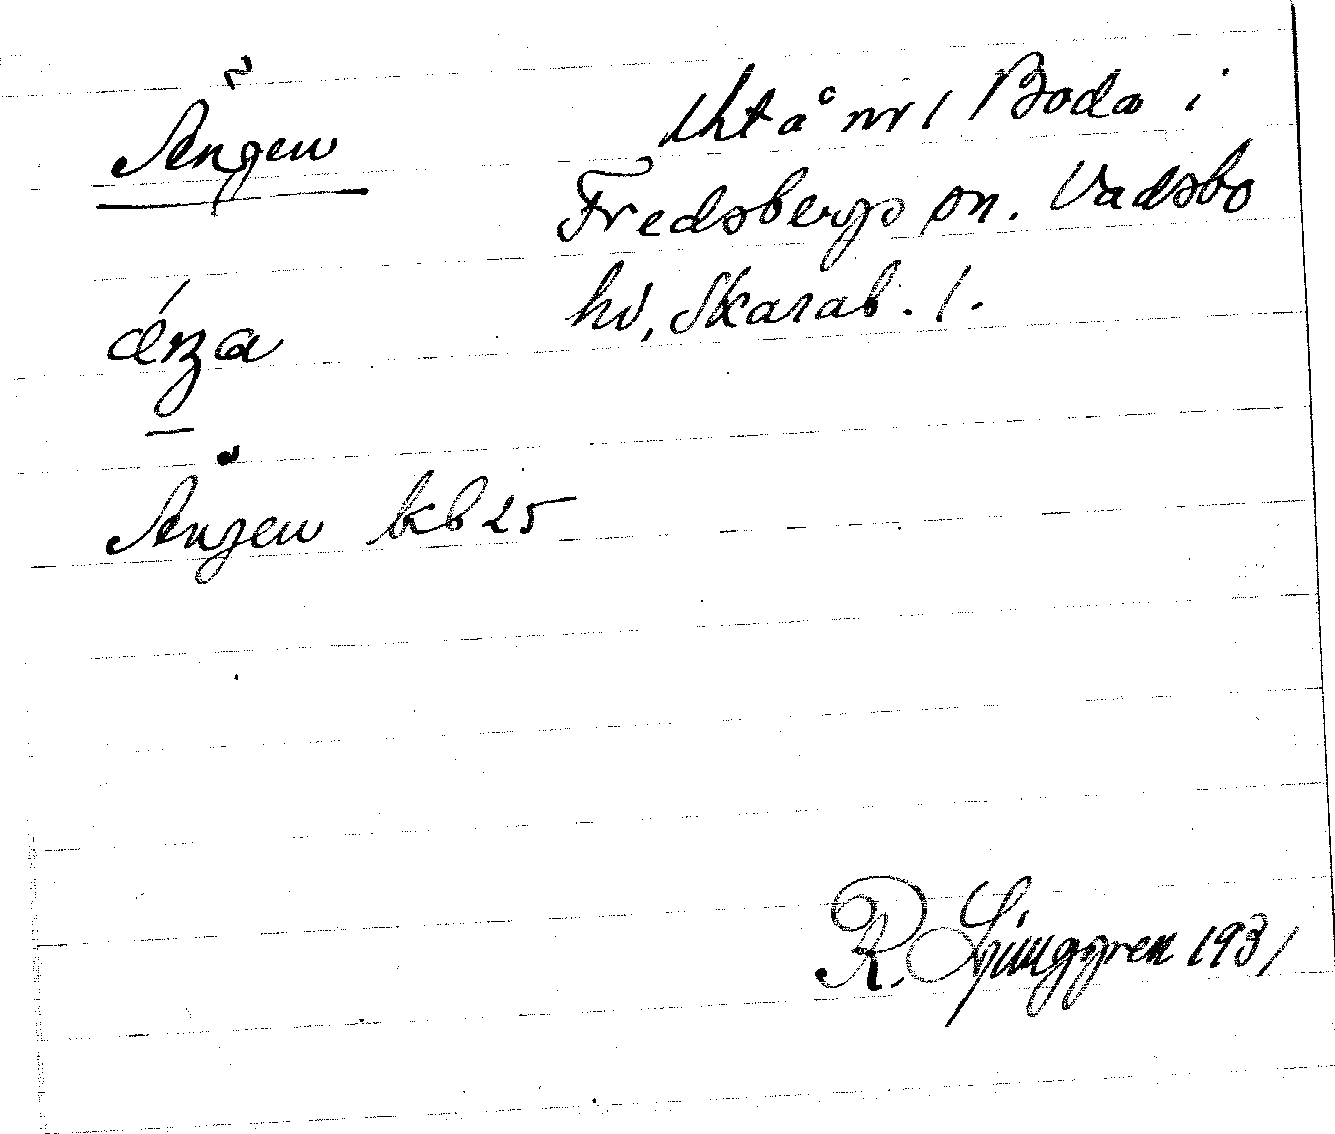 Ängen
Utå nr 1 Boda i
Fredsbergs sn. Vadsbo
hd, Skarab. l.
Ängen kb 25
R. Ljunggren 1931